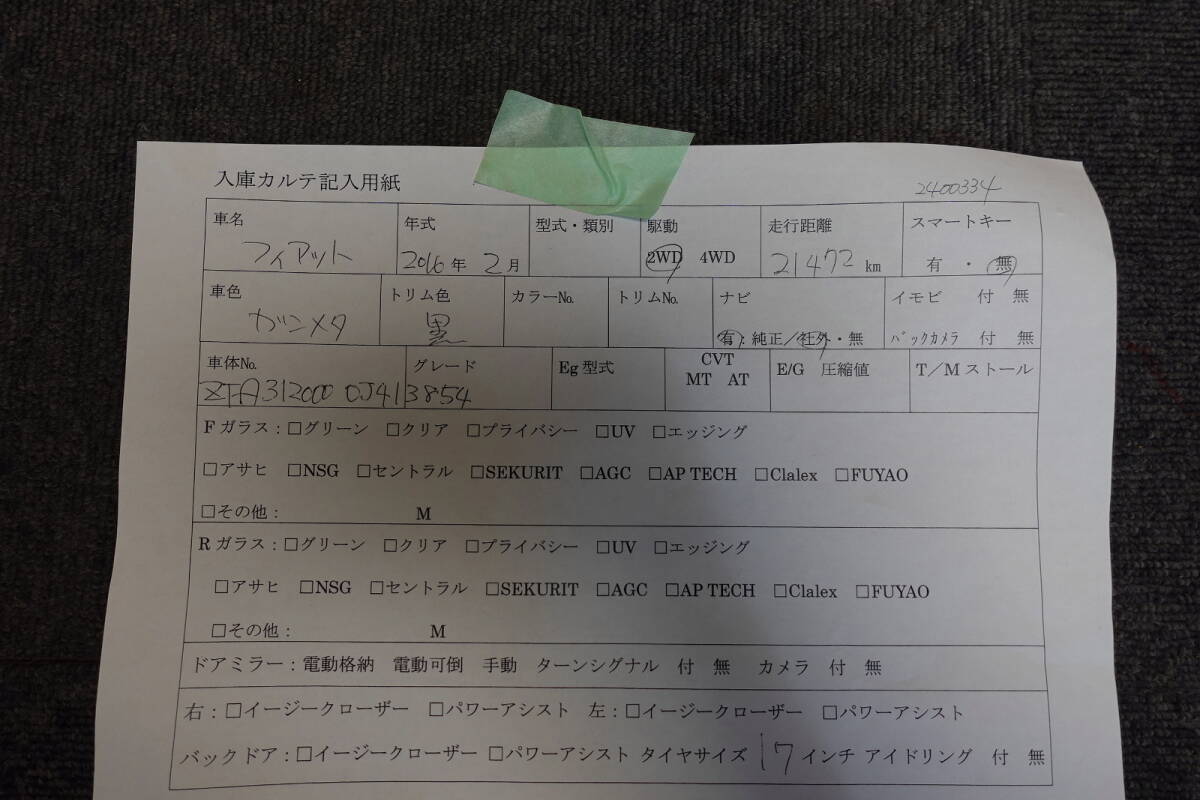 入庫カルテ記入用紙 2400334
車名 年式 型式・類別 駆動 走行距離 スマートキー
フィアット 2016年 2月 2WD 4WD 21472 km 有 ・ 無
車色 トリム色 カラーNo. トリムNo. ナビ イモビ 付 無
ガンメタ 黒 有：純正／社外・無 バックカメラ 付 無
車体No. グレード Eg型式 CVT E/G 圧縮値 T/Mストール
MT AT
ZFA312000 0J413854
Fガラス：□グリーン □クリア □プライバシー □UV □エッジング
□アサヒ □NSG □セントラル □SEKURIT □AGC □AP TECH □Clalex □FUYAO
□その他： M
Rガラス：□グリーン □クリア □プライバシー □UV □エッジング
□アサヒ □NSG □セントラル □SEKURIT □AGC □AP TECH □Clalex □FUYAO
□その他： M
ドアミラー：電動格納 電動可倒 手動 ターンシグナル 付 無 カメラ 付 無
右：□イージークローザー □パワーアシスト 左：□イージークローザー □パワーアシスト
バックドア：□イージークローザー □パワーアシスト タイヤサイズ 17インチ アイドリング 付 無